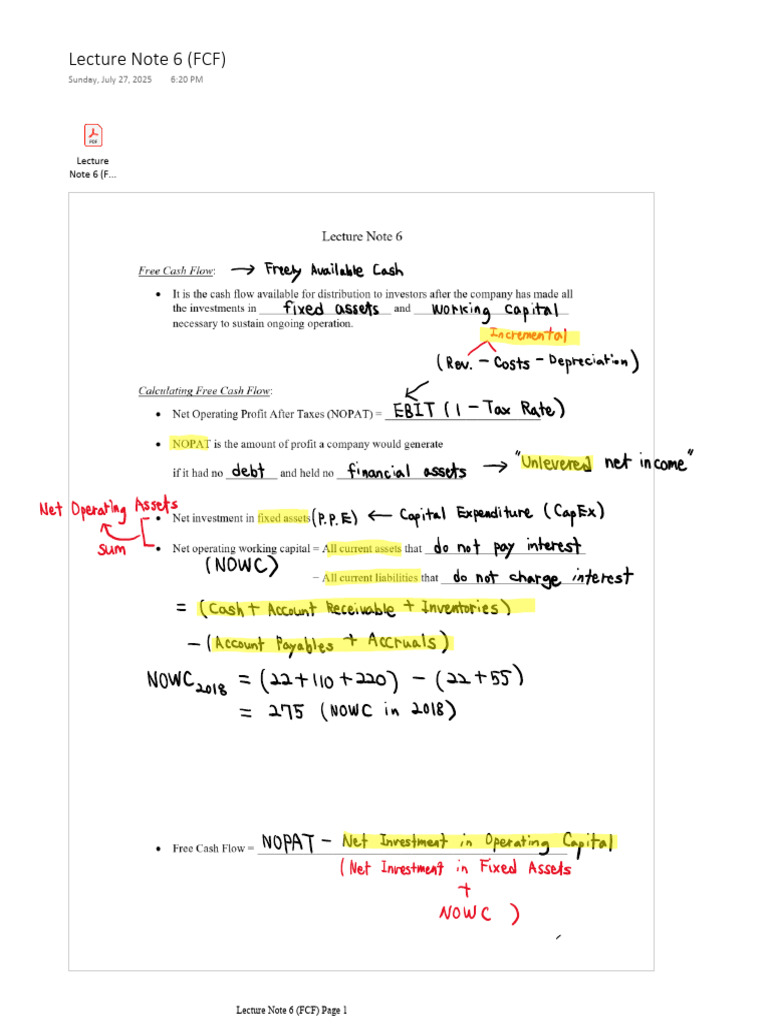 Lecture Note 6 (FCF)
Sunday, July 27, 2025 6:20 PM
PDF
Lecture
Note 6 (F...
Lecture Note 6
Free Cash Flow: → Freely Available Cash
• It is the cash flow available for distribution to investors after the company has made all
the investments in fixed assets and working capital
necessary to sustain ongoing operation.
Incremental
(Rev. - Costs - Depreciation)
Calculating Free Cash Flow:
• Net Operating Profit After Taxes (NOPAT) = EBIT (1 - Tax Rate)
• NOPAT is the amount of profit a company would generate
if it had no debt and held no financial assets → "Unlevered net income"
Net Operating Assets
• Net investment in fixed assets (P.P.E) ← Capital Expenditure (CapEx)
sum
• Net operating working capital = All current assets that do not pay interest
(NOWC)
− All current liabilities that do not charge interest
= (Cash + Account Receivable + Inventories)
- (Account Payables + Accruals)
NOWC2018 = (22+110+220) - (22+55)
= 275 (NOWC in 2018)
• Free Cash Flow = NOPAT - Net Investment in Operating Capital
(Net Investment in Fixed Assets
+
NOWC )
Lecture Note 6 (FCF) Page 1